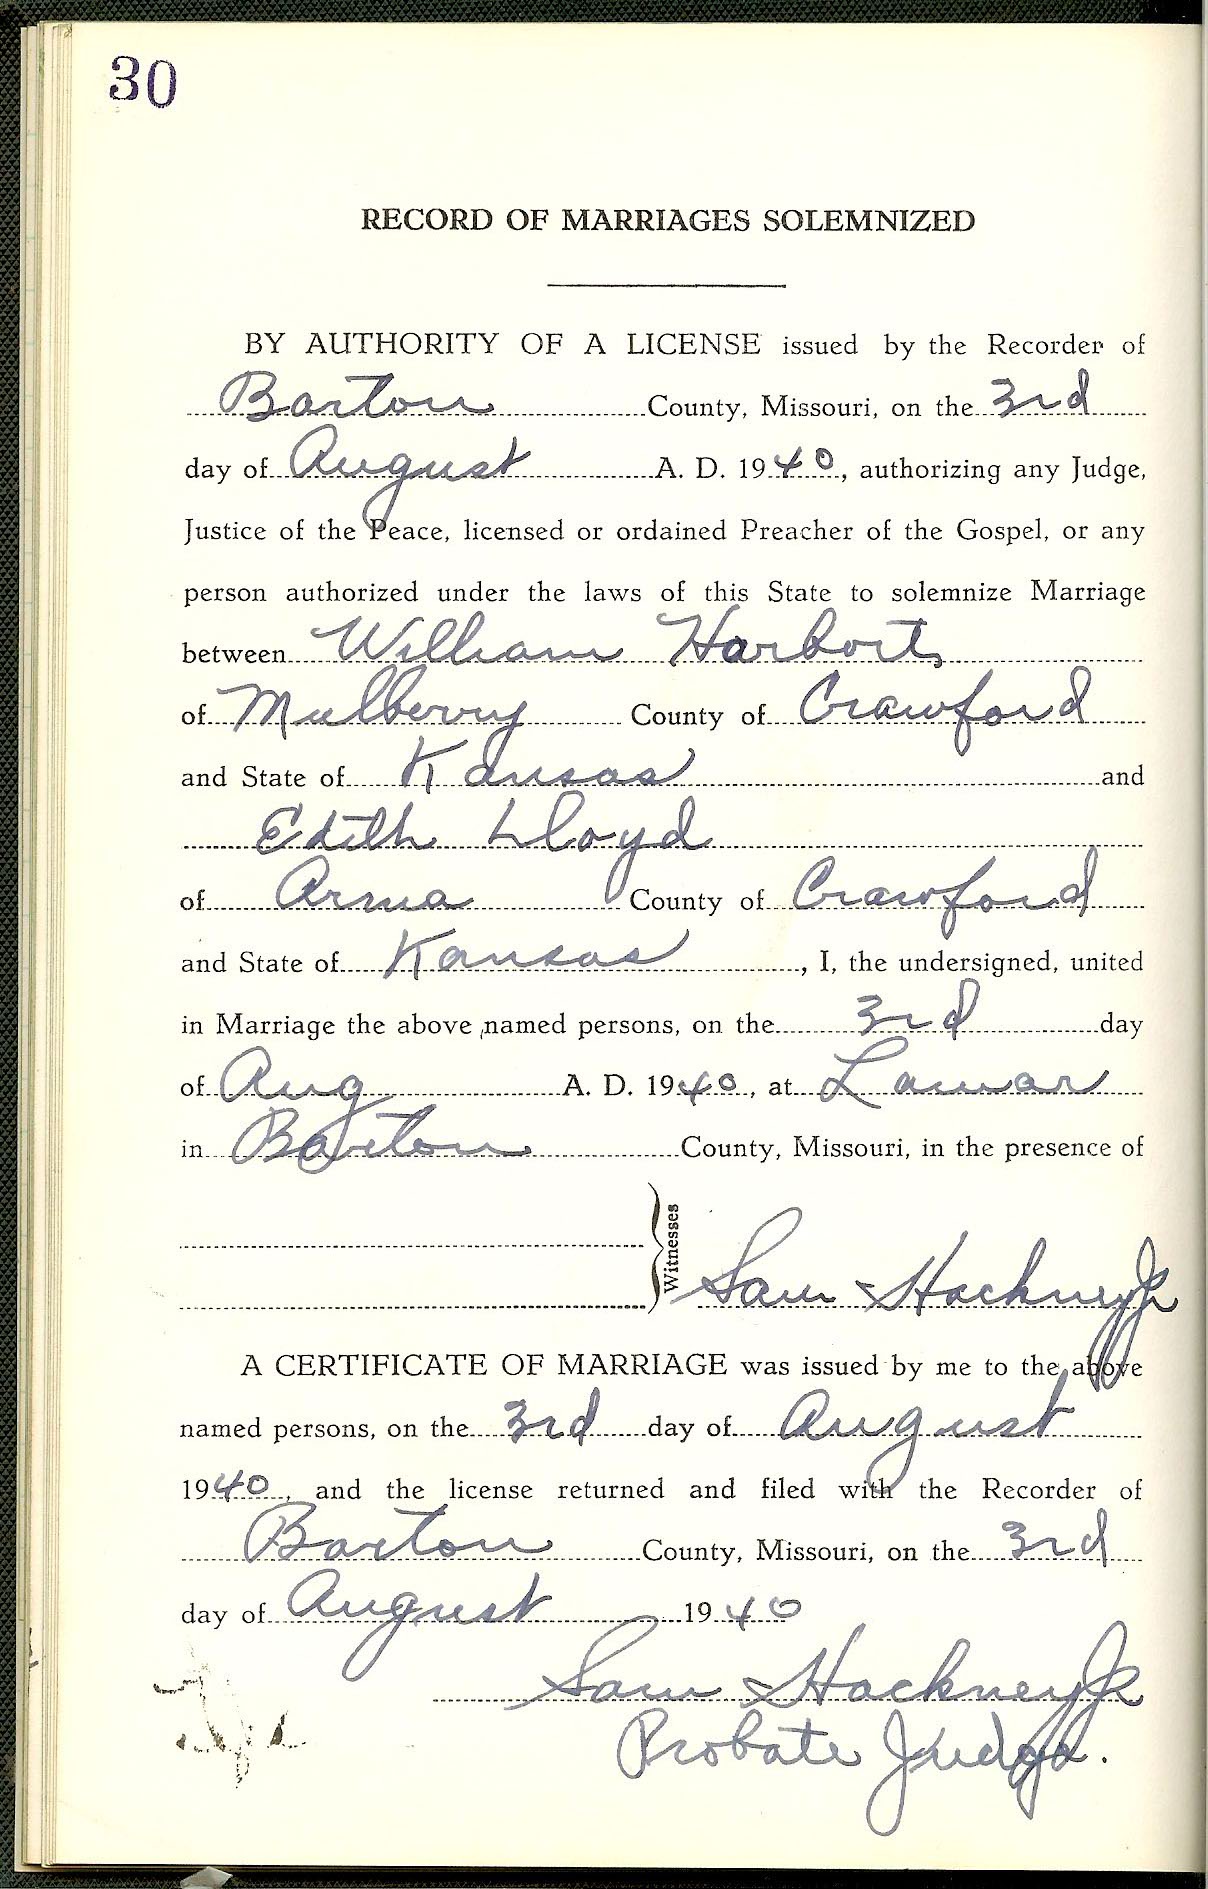 30
RECORD OF MARRIAGES SOLEMNIZED
BY AUTHORITY OF A LICENSE issued by the Recorder of
Barton County, Missouri, on the 3rd
day of August A. D. 1940, authorizing any Judge,
Justice of the Peace, licensed or ordained Preacher of the Gospel, or any
person authorized under the laws of this State to solemnize Marriage
between William Harbort
of Mulberry County of Crawford
and State of Kansas and
Edith Lloyd
of Arma County of Crawford
and State of Kansas, I, the undersigned, united
in Marriage the above named persons, on the 3rd day
of Aug A. D. 1940, at Lamar
in Barton County, Missouri, in the presence of
Witnesses
Sam Hackney Jr
A CERTIFICATE OF MARRIAGE was issued by me to the above
named persons, on the 3rd day of August
1940, and the license returned and filed with the Recorder of
Barton County, Missouri, on the 3rd
day of August 1940
Sam Hackney Jr
Probate Judge.